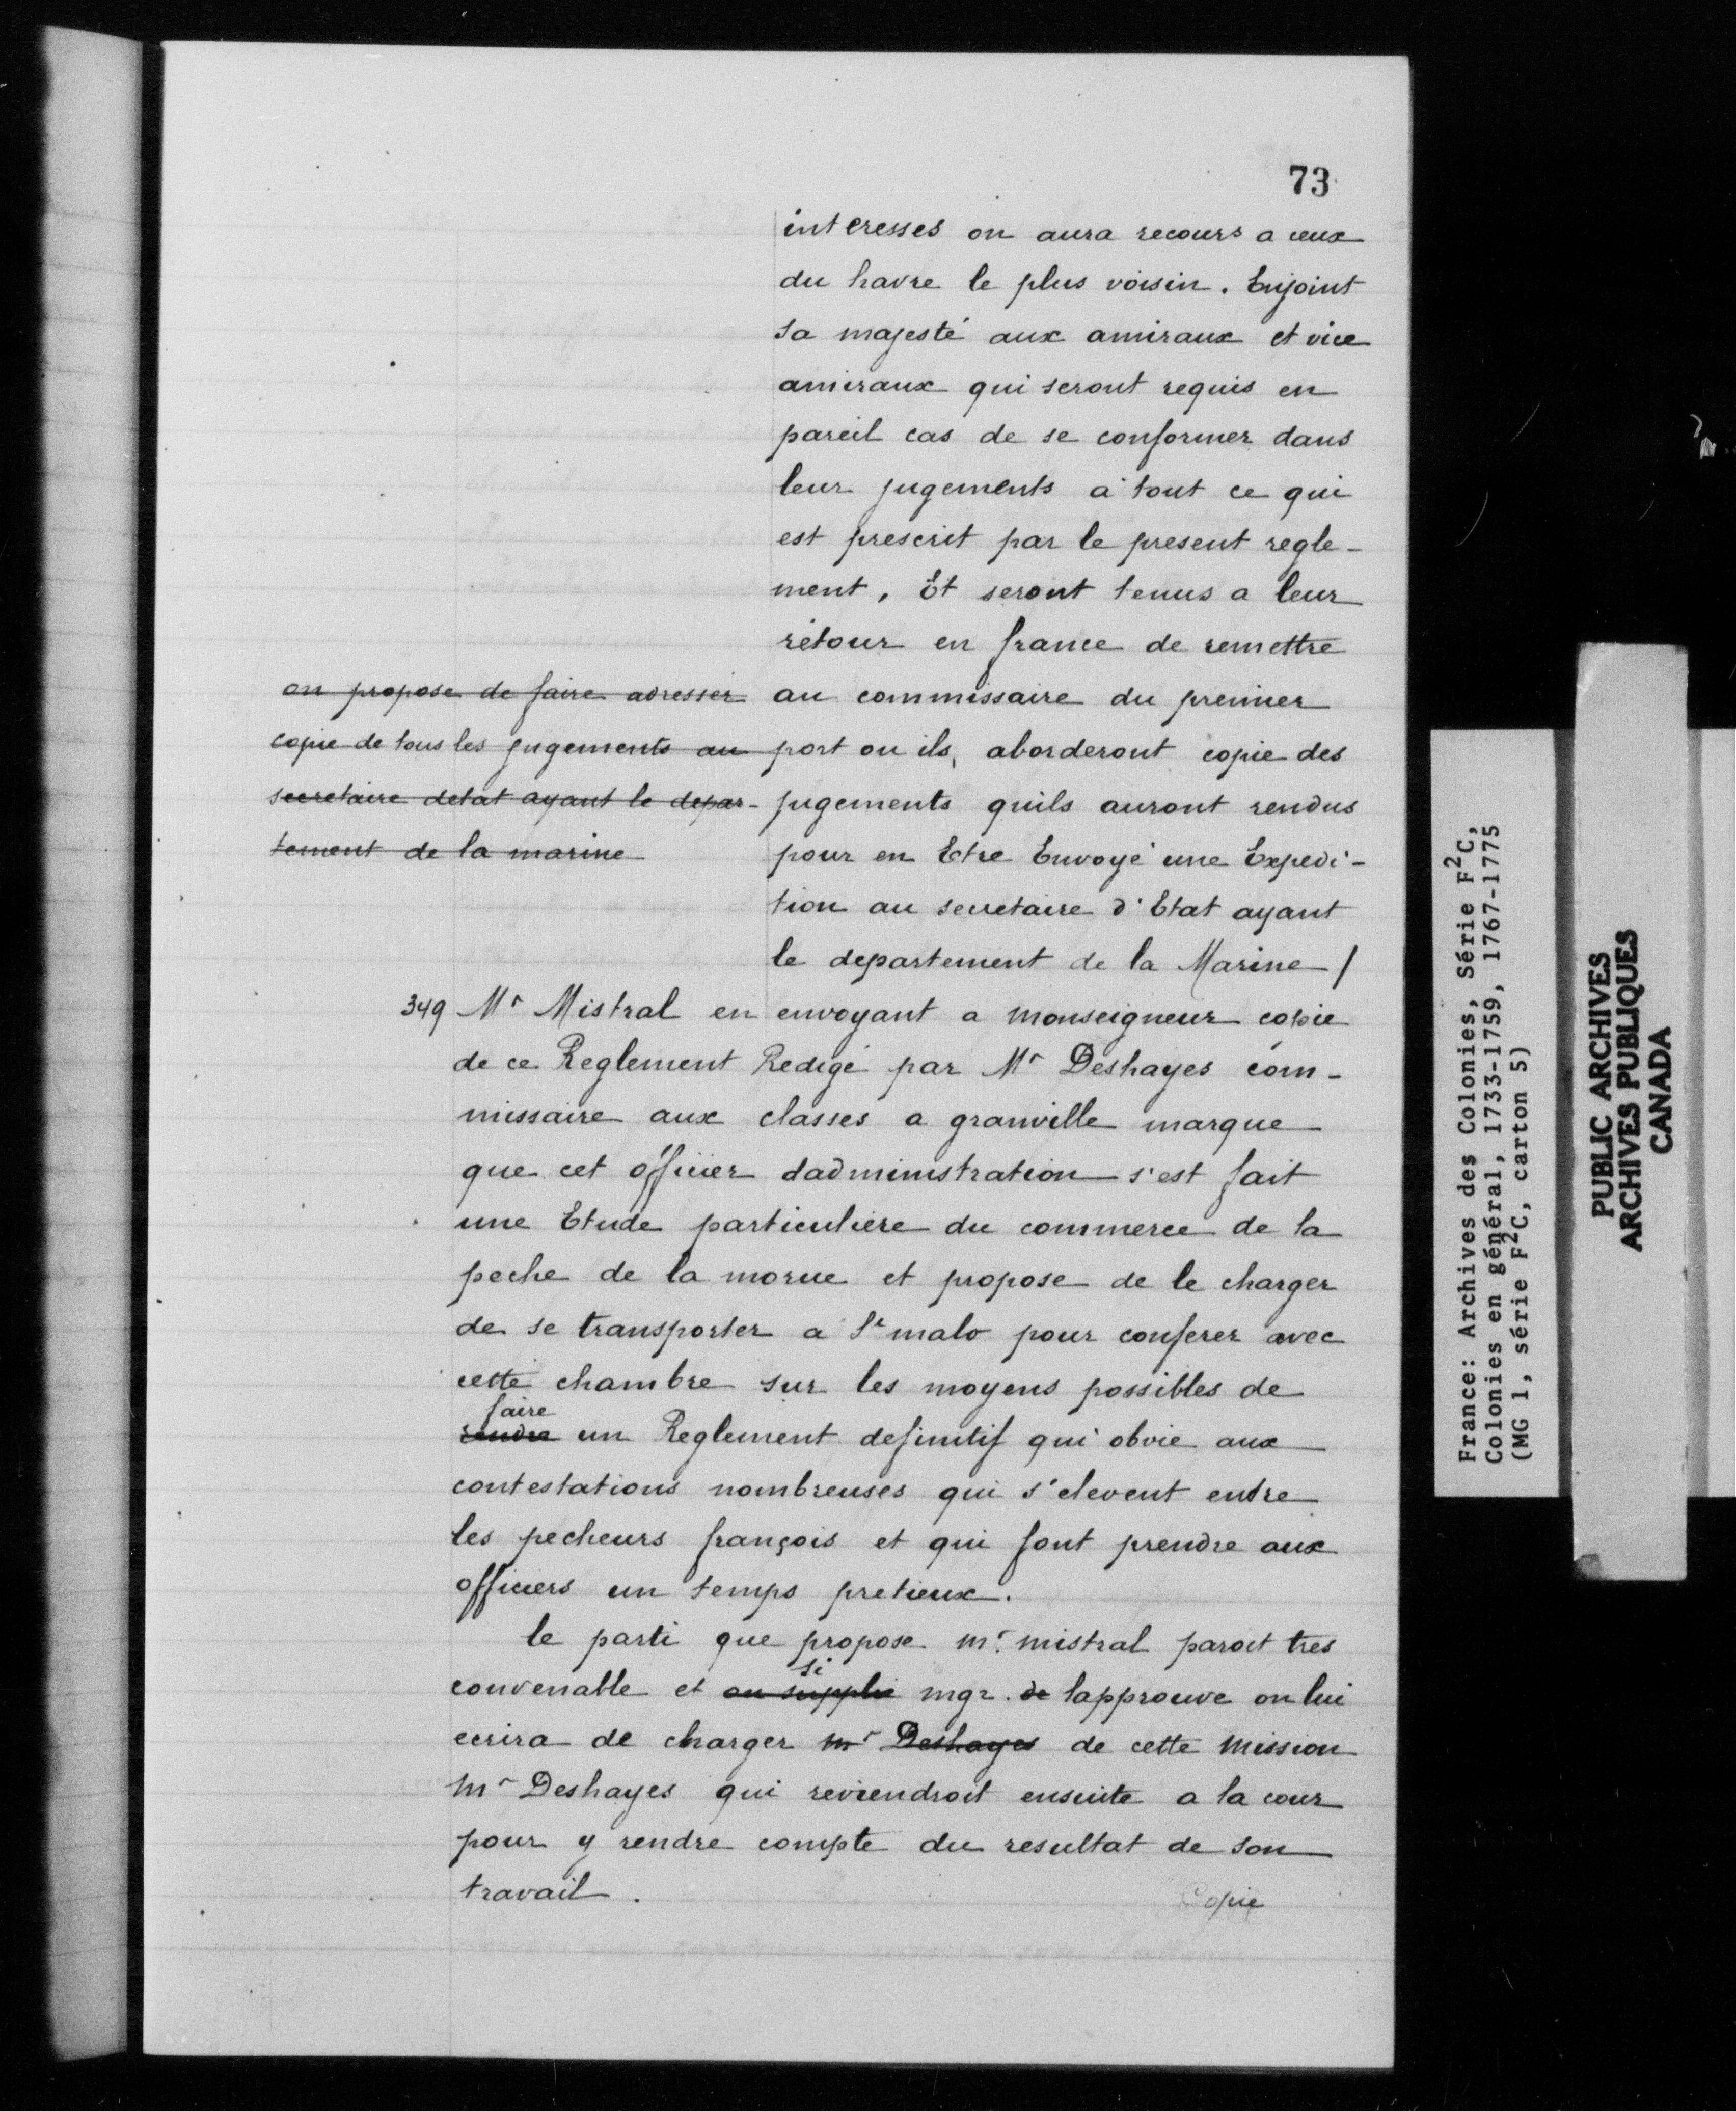 73
interesses on aura recours a ceux
du havre le plus voisin. Enjoint
sa majesté aux amiraux et vice
amiraux qui seront requis en
pareil cas de se conformer dans
leur jugements à tout ce qui
est prescrit par le present regle-
ment, Et seront tenus a leur
retour en france de remettre
au commissaire du premier
port ou ils, aborderont copie des
jugements quils auront rendus
pour en Etre Envoyé une Expedi-
tion au secretaire d'Etat ayant
le departement de la Marine /
on propose de faire adresser
copie de tous les jugements au
secretaire detat ayant le depar-
tement de la marine
349 Mr Mistral en envoyant a monseigneur copie
de ce Reglement Redigé par Mr Deshayes com-
missaire aux classes a granville marque
que cet officier dadministration s'est fait
une Etude particuliere du commerce de la
peche de la morue et propose de le charger
de se transporter a St malo pour conferer avec
cette chambre sur les moyens possibles de
faire
rendre un Reglement definitif qui obvie aux
contestations nombreuses qui s'elevent entre
les pecheurs françois et qui font prendre aux
officiers un temps pretieux.
le parti que propose mr. mistral paroit tres
si
convenable et on supplie mgr. de lapprouve on lui
ecrira de charger mr Deshayes de cette mission
mr Deshayes qui reviendroit ensuite a la cour
pour y rendre compte du resultat de son
travail.
Copie
France: Archives des Colonies, Série F2C,
Colonies en général, 1733-1759, 1767-1775
(MG 1, série F2C, carton 5)
PUBLIC ARCHIVES
ARCHIVES PUBLIQUES
CANADA